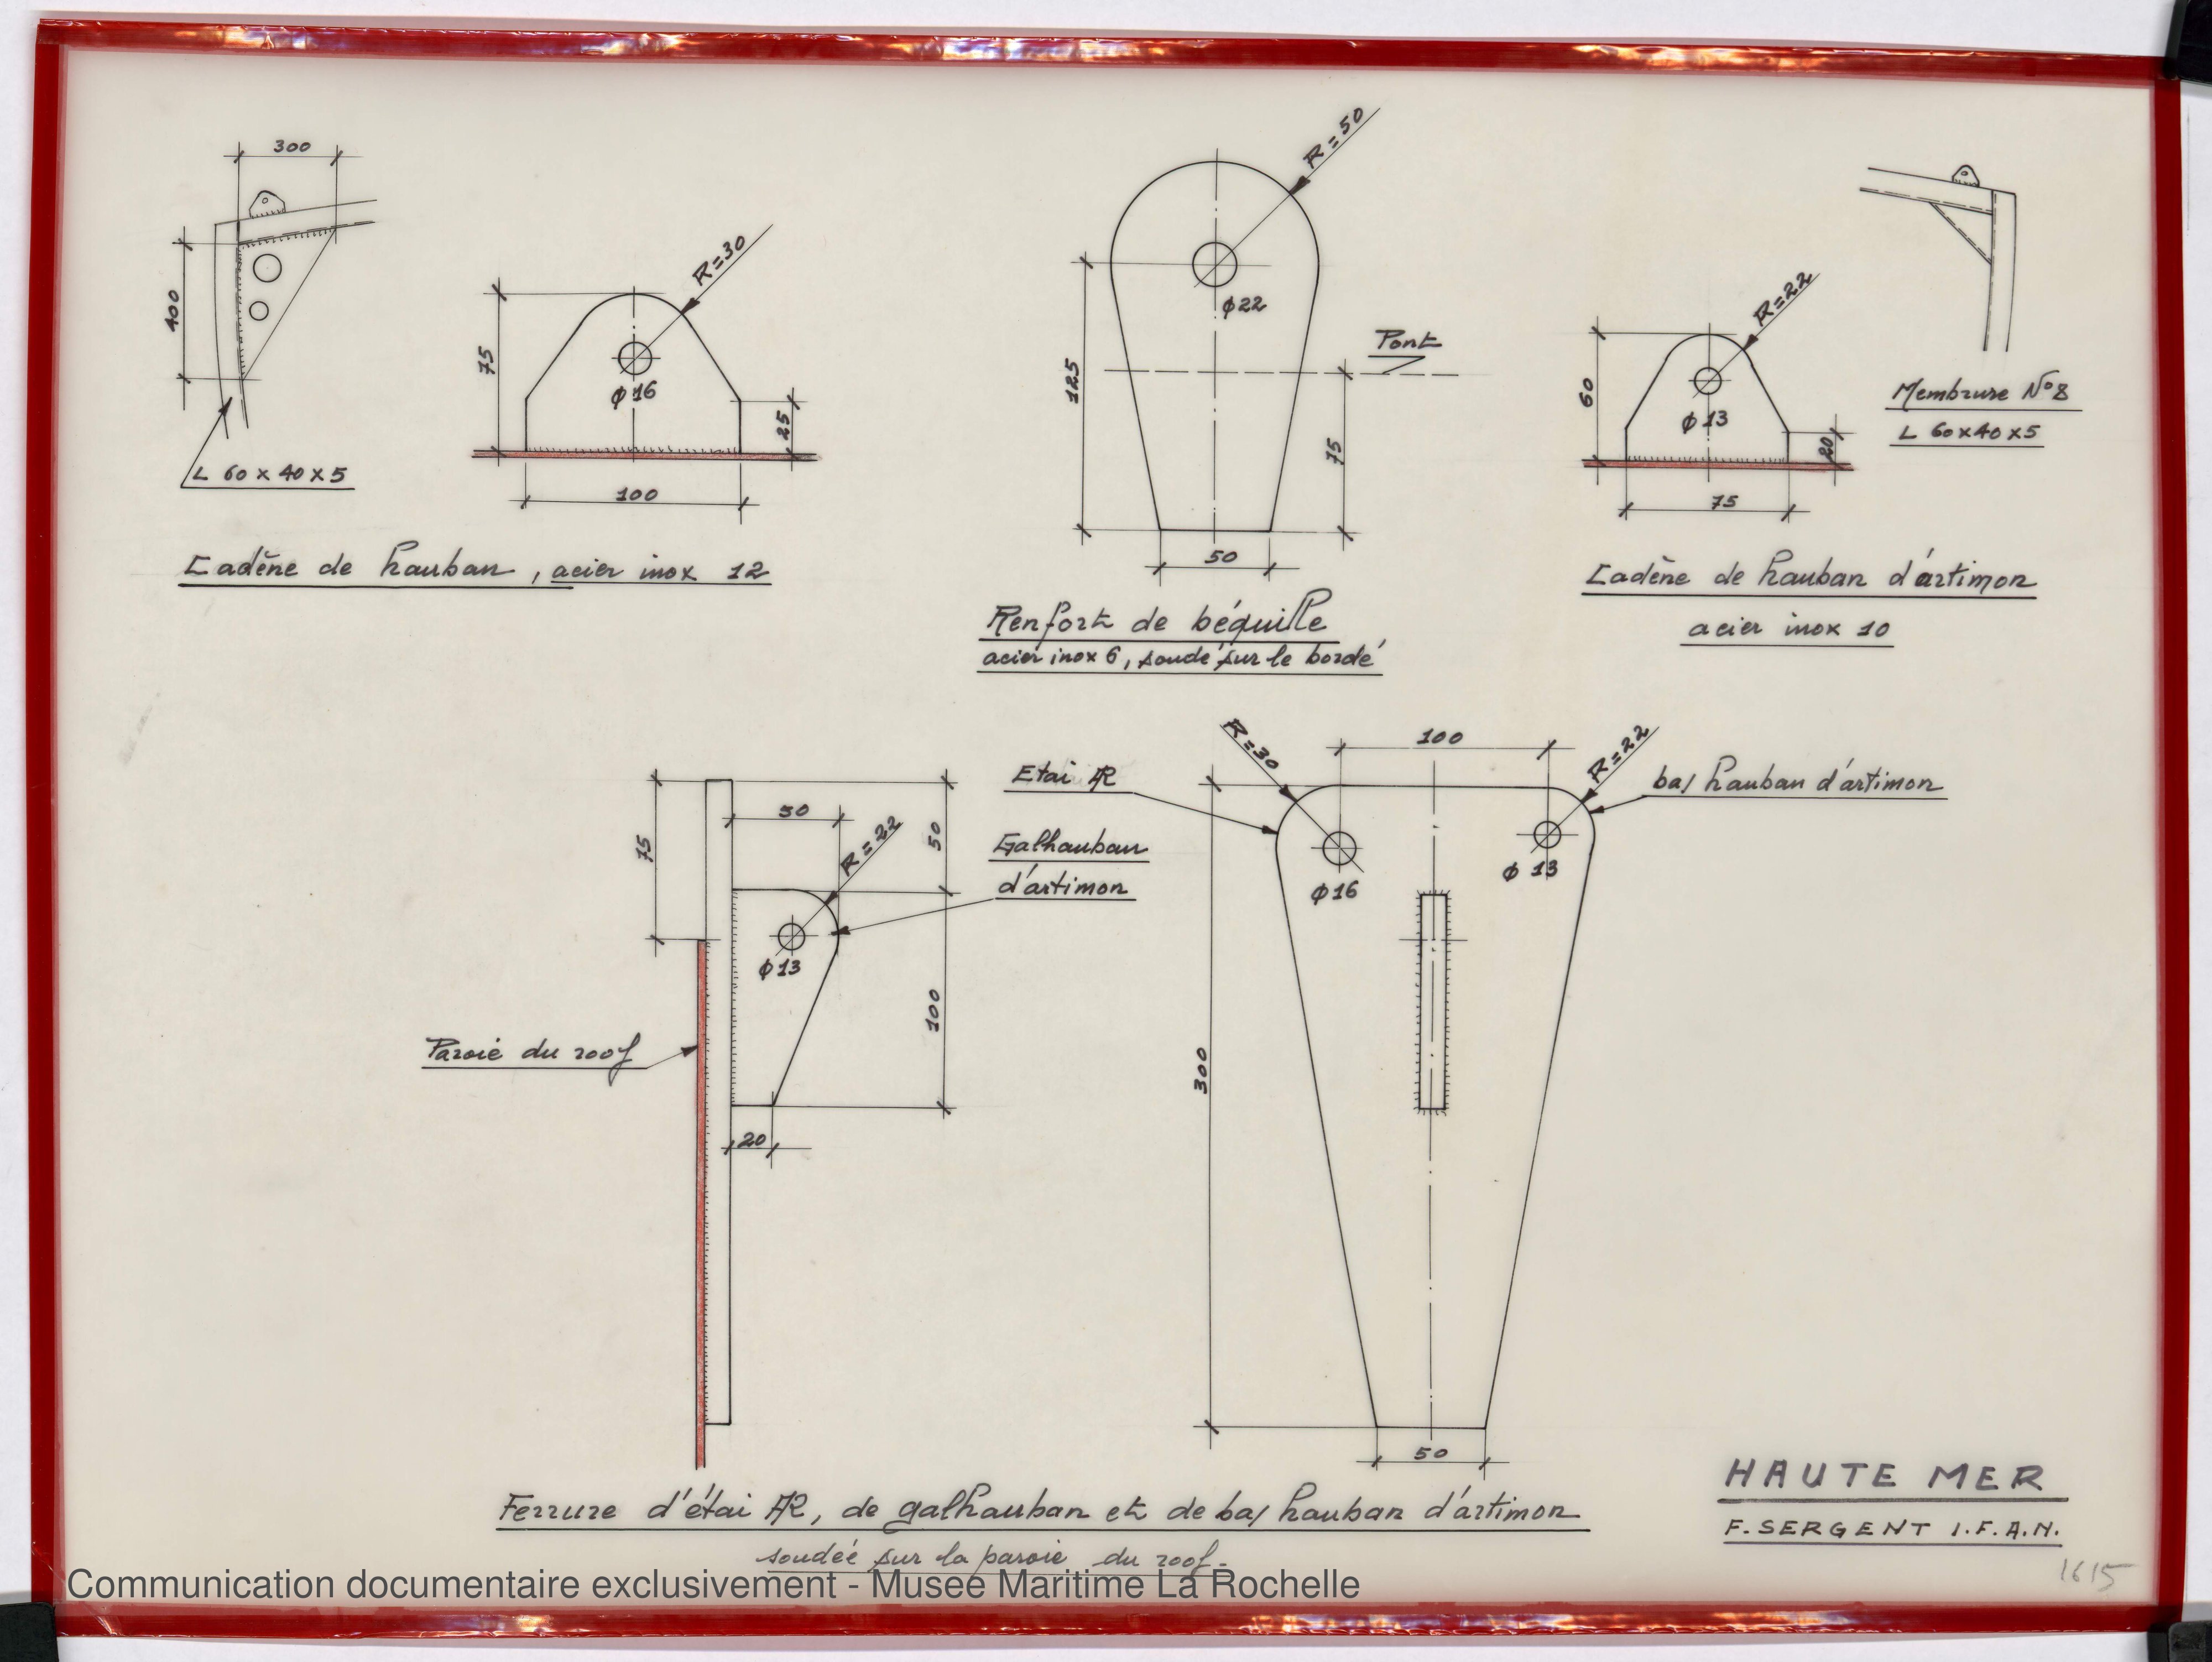 300
400
L 60 x 40 x 5
R=30
75
φ16
25
100
Cadène de hauban, acier inox 12
R=50
φ22
125
Pont
75
50
Renfort de béquille
acier inox 6, soudé sur le bordé
R=22
60
φ13
20
75
Membrure N°8
L 60x40x5
Cadène de hauban d'artimon
acier inox 10
75
50
R=22
50
φ13
100
20
Paroie du roof
Etai AR
Galhauban
d'artimon
R=30
100
R=22
bas hauban d'artimon
φ16
φ13
300
50
Ferrure d'étai AR, de galhauban et de bas hauban d'artimon
soudée sur la paroie du roof.
HAUTE MER
F. SERGENT I.F.A.N.
1615
Communication documentaire exclusivement - Musée Maritime La Rochelle